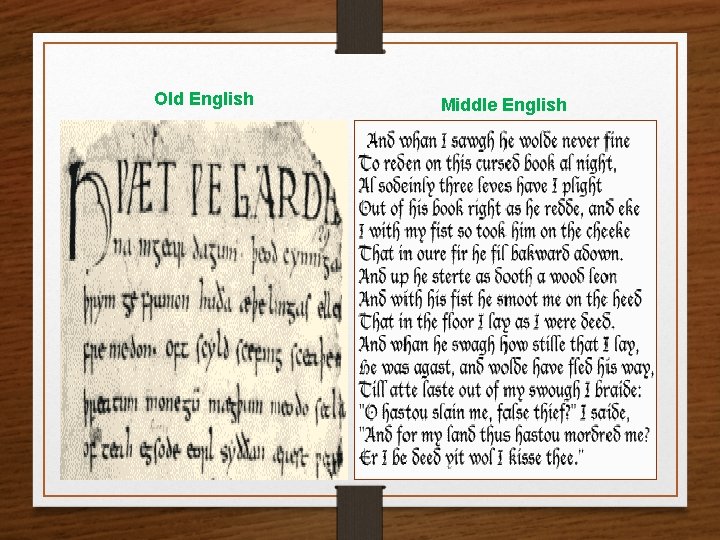 Old English
HǷÆT ǷE GARDE
na ingear dagum. þeod cyninga
þrym ge frunon huða æþelingas ellen
fremedon. oft scyld scefing sceaþen
þreatum monegū mægþum meodo setla
of teah egsode eorl syððan ærest
Middle English
And whan I sawgh he wolde never fine
To reden on this cursed book al night,
Al sodeinly three leves have I plight
Out of his book right as he redde, and eke
I with my fist so took him on the cheeke
That in oure fir he fil bakward adown.
And up he sterte as dooth a wood leon
And with his fist he smoot me on the heed
That in the floor I lay as I were deed.
And whan he swagh how stille that I lay,
He was agast, and wolde have fled his way,
Till atte laste out of my swough I braide:
"O hastou slain me, false thief?" I saide,
"And for my land thus hastou mordred me?
Er I be deed yit wol I kisse thee."